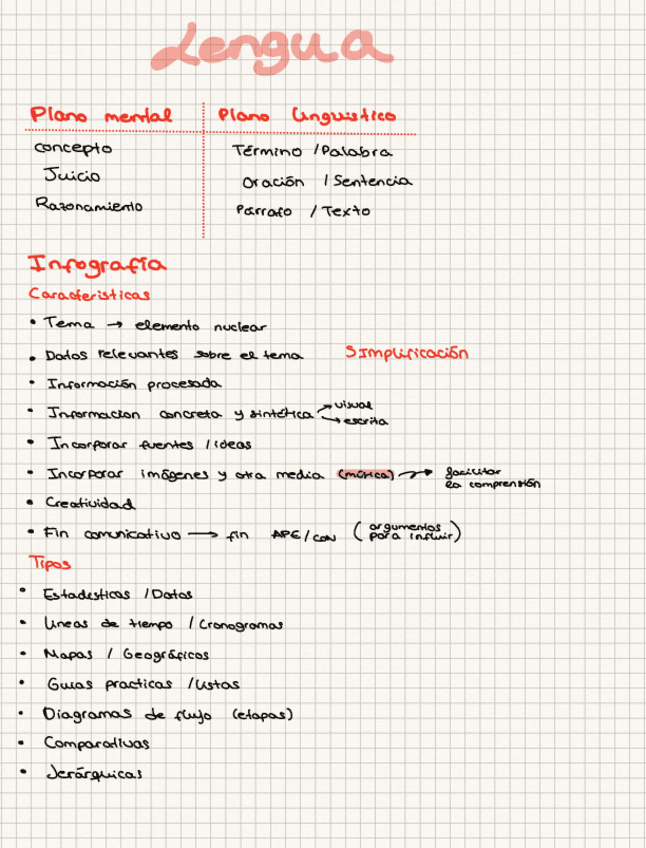 Lengua
Plano mental Plano lingüístico
concepto Término / Palabra
Juicio Oración / Sentencia
Razonamiento Párrafo / Texto
Infografía
Características
• Tema → elemento nuclear
• Datos relevantes sobre el tema Simplificación
• Información procesada
• Informacion concreta y sintética → visual
→ escrita
• Incorporar fuentes / ideas
• Incorporar imágenes y otra media (música) → facilitar
la comprensión
• Creatividad
• Fin comunicativo → fin APE/CON (argumentos
para influir)
Tipos
• Estadísticas / Datos
• Lineas de tiempo / Cronogramas
• Mapas / Geográficos
• Guias practicas / Listas
• Diagramas de flujo (etapas)
• Comparativas
• Jerárquicas